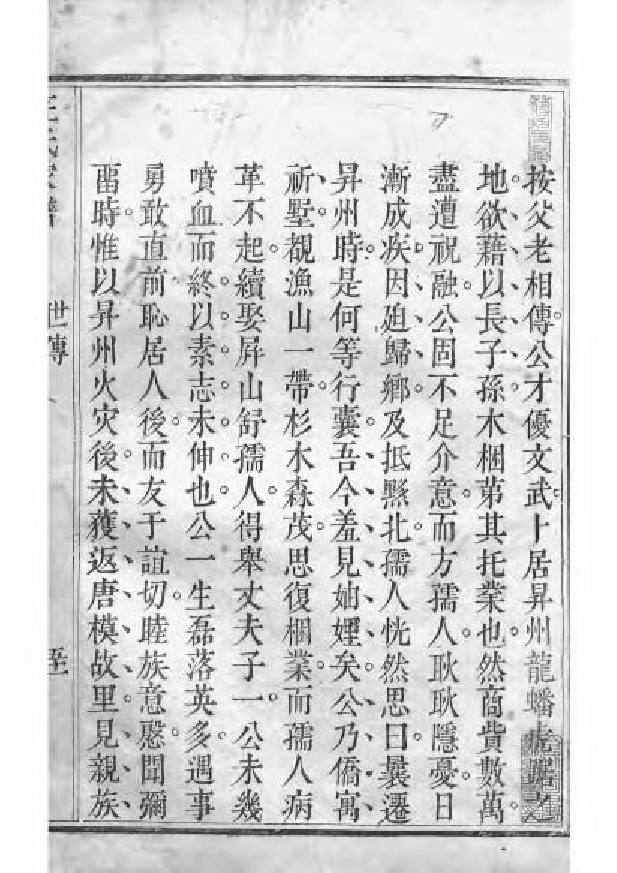 按父老相傳公才優文武卜居昇州龍蟠虎踞之
地欲藉以長子孫木梱第其托業也然商貲數萬
盡遭祝融公固不足介意而方孺人耿耿隱憂日
漸成疾因廹歸鄉及抵黟北孺人恍然思曰曩遷
昇州時是何等行囊吾今羞見妯娌矣公乃僑寓
祈墅覩漁山一帶杉木森茂思復梱業而孺人病
革不起續娶屏山舒孺人得舉丈夫子一公未幾
噴血而終以素志未伸也公一生磊落英多遇事
勇敢直前恥居人後而友于誼切睦族意慇聞彌
畱時惟以昇州火灾後未獲返唐模故里見親族
世傳